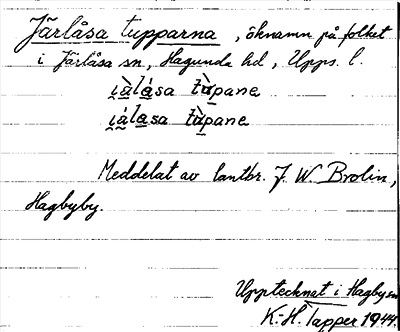 Järlåsa tupparna, öknamn på folket
i Järlåsa sn, Hagunda hd, Upps. l.
i̯à̰lá̱sa tù̱pane
i̯á̰la̱sa tù̱pane
Meddelat av lantbr. J. W. Brolin,
Hagbyby.
Upptecknat i Hagby sn
K.-H. Tapper 1944.